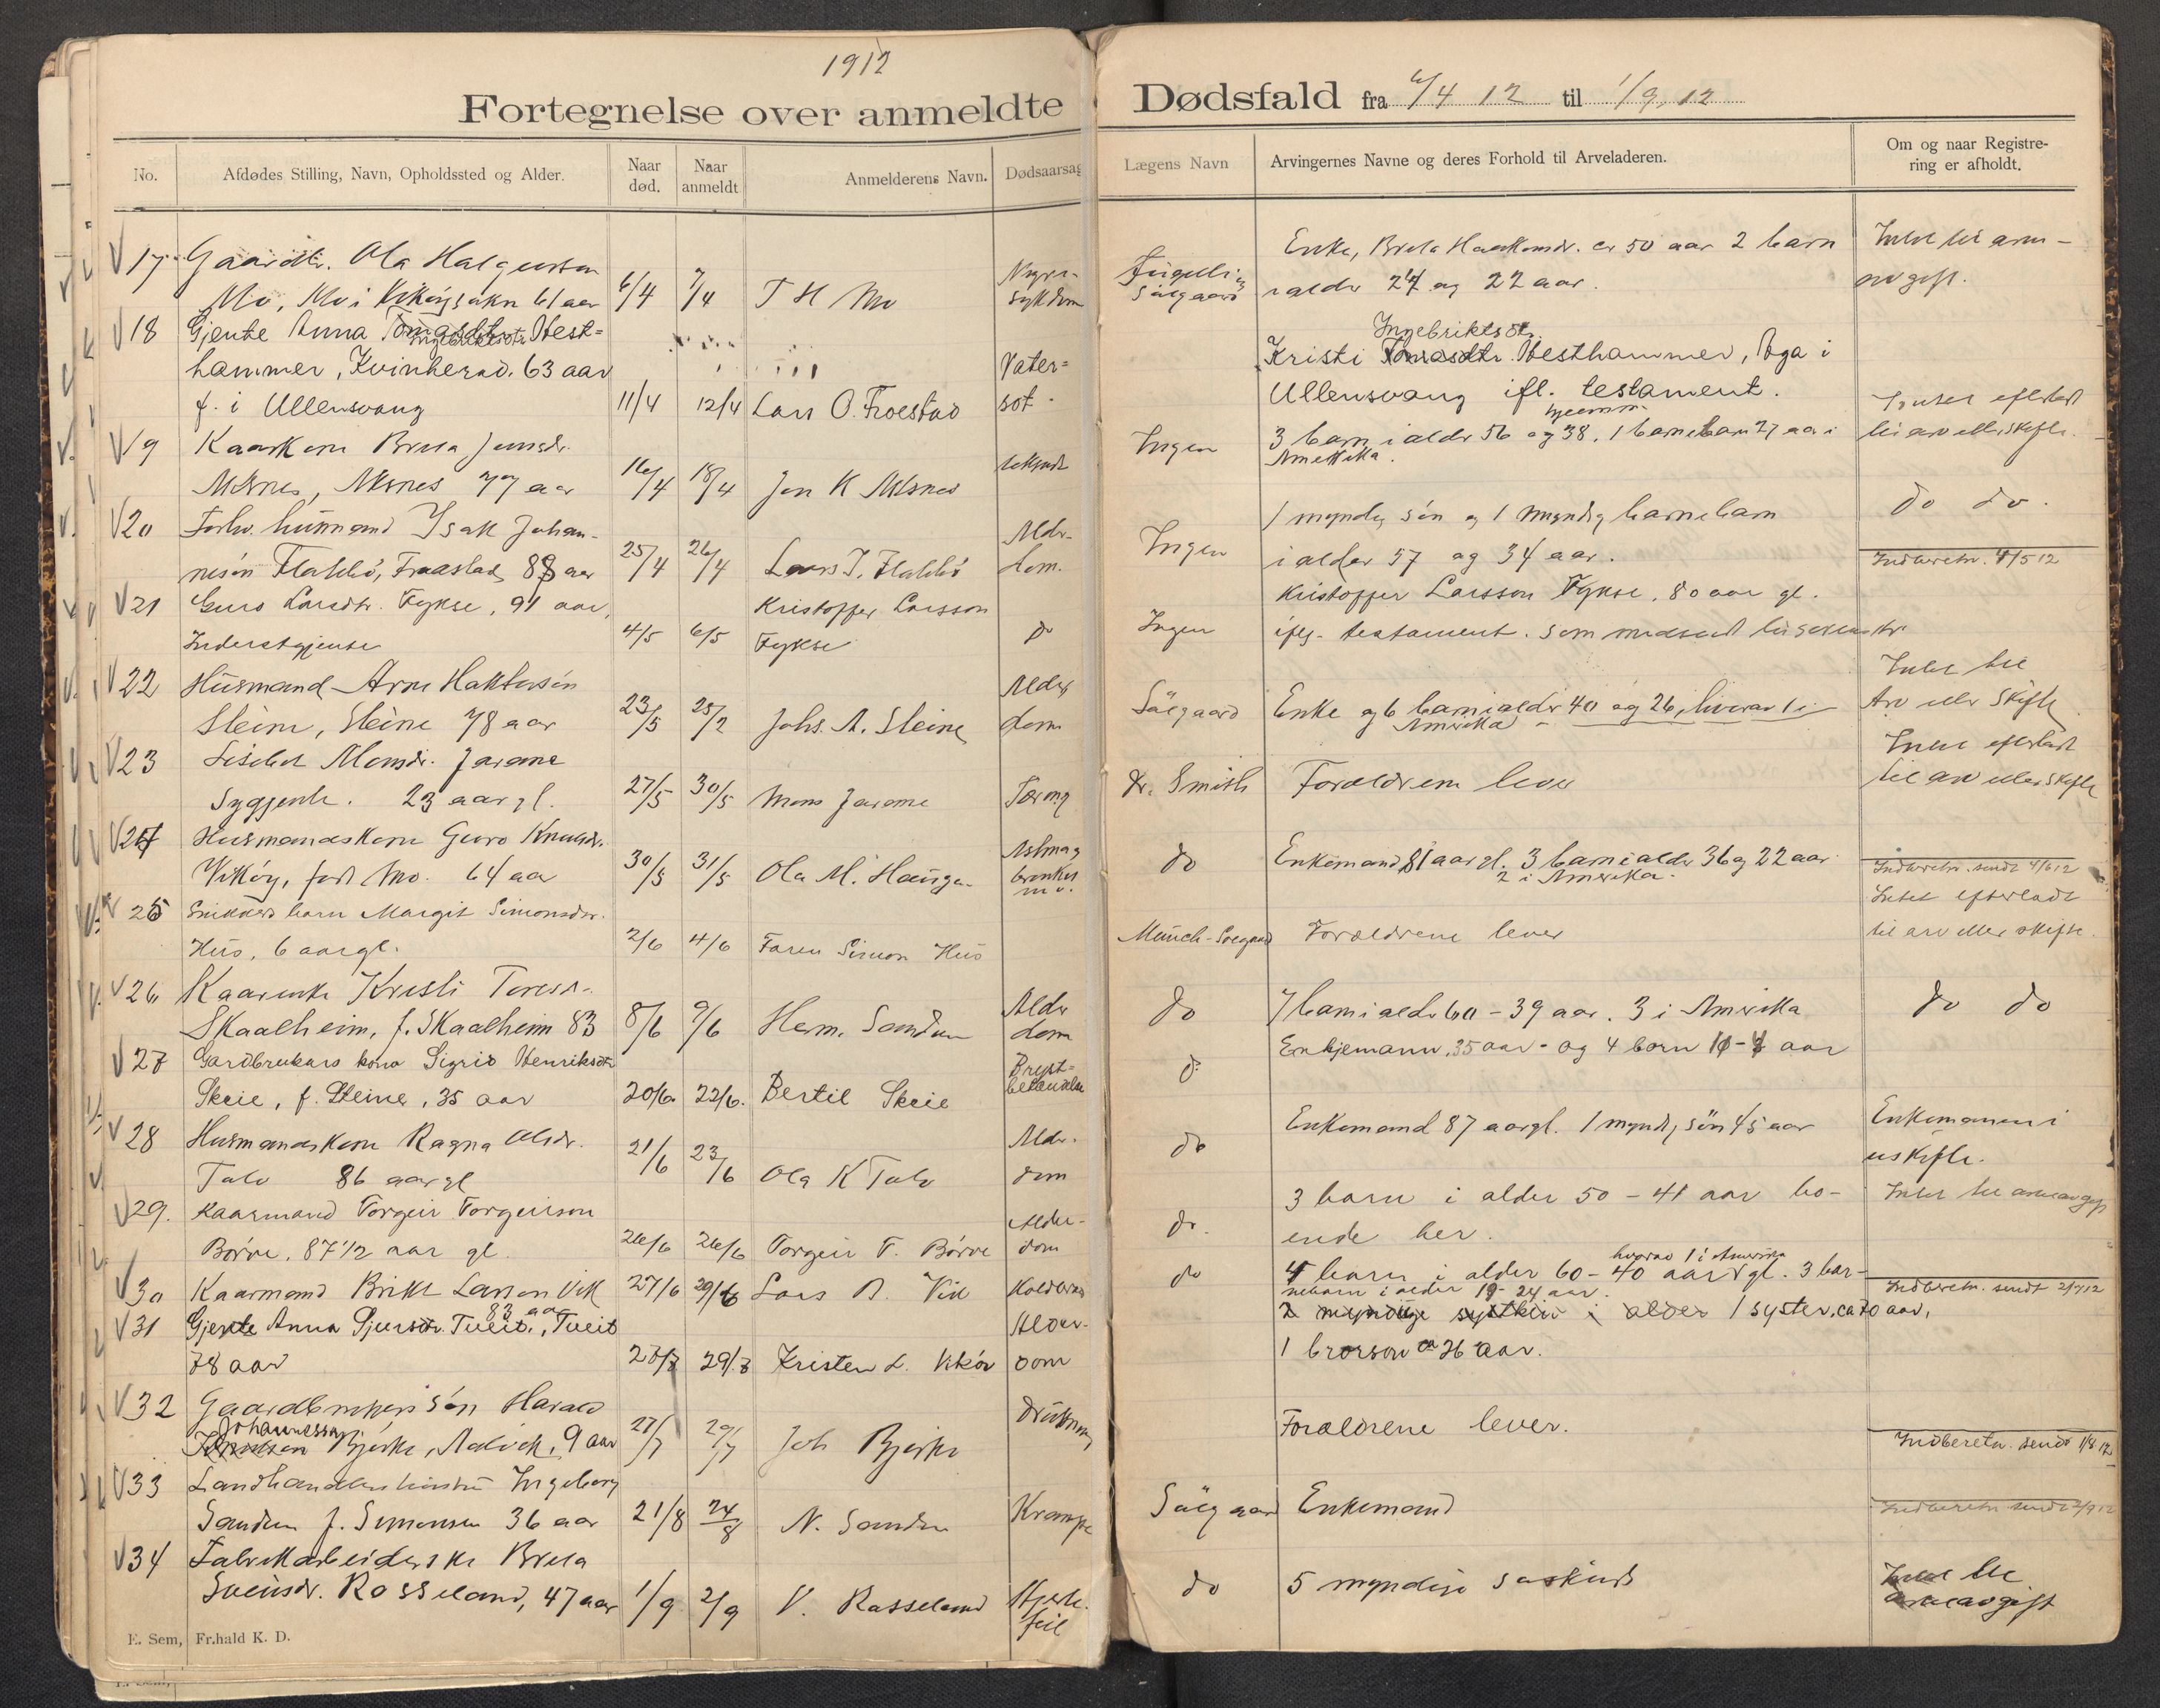 1912
Fortegnelse over anmeldte
Dødsfald fra 6/4 12 til 1/9, 12
No.
Afdødes Stilling, Navn, Opholdssted og Alder.
Naar død.
Naar anmeldt
Anmelderens Navn.
Dødsaarsag
Lægens Navn
Arvingernes Navne og deres Forhold til Arveladeren.
Om og naar Registre-
ring er afholdt.
17 Gaardbr. Ola Halgeirsen
Mo, Mo i Vikøy sokn 61 aar 6/4 7/4 T H Mo Nyre-
sykdom
Sålgaard
Enke, Brita Haakonsdr. er 50 aar 2 barn
i alder 24 og 22 aar.
Intet til arve-
avgift.
18 Gjente Anna Tomasdtr. Hest=
Ingebriktsdtr.
hammer, Kvinherad. 63 aar
f. i Ullensvang 11/4 12/4 Lars O. Froestad Vater=
sot.
Ingebriktsdt.
Kristi Tomasdtr. Hesthammer, Aga i
Ullensvang ifl. testament.
19 Kaarkone Brita Jonsdr.
Aksnes, Aksnes 77 aar 16/4 18/4 Jon K Aksnes ukjendt
Ingen
3 barn i alder 56 og 38. 1 barnebarn 27 aar i
hjemme
Amerika.
Intet efterladt
til arv eller skifte.
20 Forhv. husmand Isak Johan-
nesøn Flatebø, Fraastad, 88 aar 25/4 26/4 Lars I. Flatebø Alder-
dom.
Ingen
1 myndig søn og 1 myndig barnebarn
i alder 57 og 34 aar.
do do.
Indberetn. 4/5 12
21 Guro Larsdtr. Fykse, 91 aar,
Inderstgjente 4/5 6/5 Kristoffer Larsson
Fykse do
Ingen
Kristoffer Larsson Fykse, 80 aar gl.
ifg. testament. som
22 Husmand Arne Haktorsøn
Steine, Steine 78 aar 23/5 25/2 Johs. A. Steine Alder
dom
Sålgaard
Enke og 6 barn i alder 40 og 26, hvorav 1 i
Amerika
Intet til
Arv eller Skifte
23 Lisbet Monsdr. Jarane
Sygjente. 23 aar gl. 27/5 30/5 Mons Jarane Tæring
Dr. Smith
Forældrene lever
Intet efterladt
til arv eller skifte
24 Husmandskone Guro Knutsdr.
Vikøy, født Mo. 64 aar 30/5 31/5 Ola M. Hauge. Astma og
bronkit
m.v.
do
Enkemand 81 aar gl. 3 barn i alder 36 og 22 aar
2 i Amerika.
Indberetn. sendt 4/6 12
25 Snikkers barn Margit Simonsdr.
Hus, 6 aar gl. 2/6 4/6 Faren Simon Hus
Munch-Søegaard
Forældrene lever
Intet efterladt
til arv eller skifte.
26 Kaarenke Kristi Toresd.
Skaalheim, f. Skaalheim 83 8/6 9/6 Herm. Sandven Alder
dom
do
7 barn i alder 60 - 39 aar. 3 i Amerika
do do
27 Gardbrukars kona Sigrid Henriksdtr
Skeie, f. Steine, 35 aar 20/6. 22/6. Bertil Skeie Bryst=
betendelse
do
Enkjemann, 35 aar - og 4 born 11-4 aar
28 Husmandskone Ragna Olsdr.
Tolo 86 aar gl 21/6 23/6 Ola K Tolo Alder-
dom
do
Enkemand 87 aar gl. 1 myndig søn 45 aar
Enkemanen i
uskifte.
29. Kaarmand Torgeir Torgeirson
Børve, 87 1/2 aar gl. 26/6 26/6 Torgeir T. Børve Alder-
dom
do.
3 barn i alder 50 - 41 aar bo-
ende her.
Intet til arveavgift
30 Kaarmand Brikt Larson Vik
83 aar 27/6 29/6 Lars B. Vik Koldbrand
do
hvorav 1 i Amerika
4 barn i alder 60-40 aar gl. 3 bar-
nebarn i alder 19-24 aar.
Indberetn. sendt 2/7 12
31 Gjente Anna Sjursdtr. Tveit, Tveit
78 aar 27/7 29/7 Kristen L. Vikør Alder-
dom
2 myndige systkin i alder 1 syster, ca 70 aar,
1 brorson ca 26 aar.
32 Gaardbrukers søn Harald
Johannesson
Bjørke, Aalvik, 9 aar 27/7 29/7 Joh Bjørke Drukning
Forældrene lever.
Indberetn. sendt 1/8 12
33 Landhandlers hustru Ingeborg
Sandven f. Simonsen 36 aar 21/8 24/8 N. Sandven Krampe
Sålgaard
Enkemand
Indberetn sendt 2/9 12
34 Fabrikarbeiderske Brita
Sveinsdr. Rosseland, 47 aar 1/9 2/9 V. Rosseland Hjerte-
feil
do
5 myndige søskend
Intet til
arveavgift
E. Sem, Fr.hald K. D.